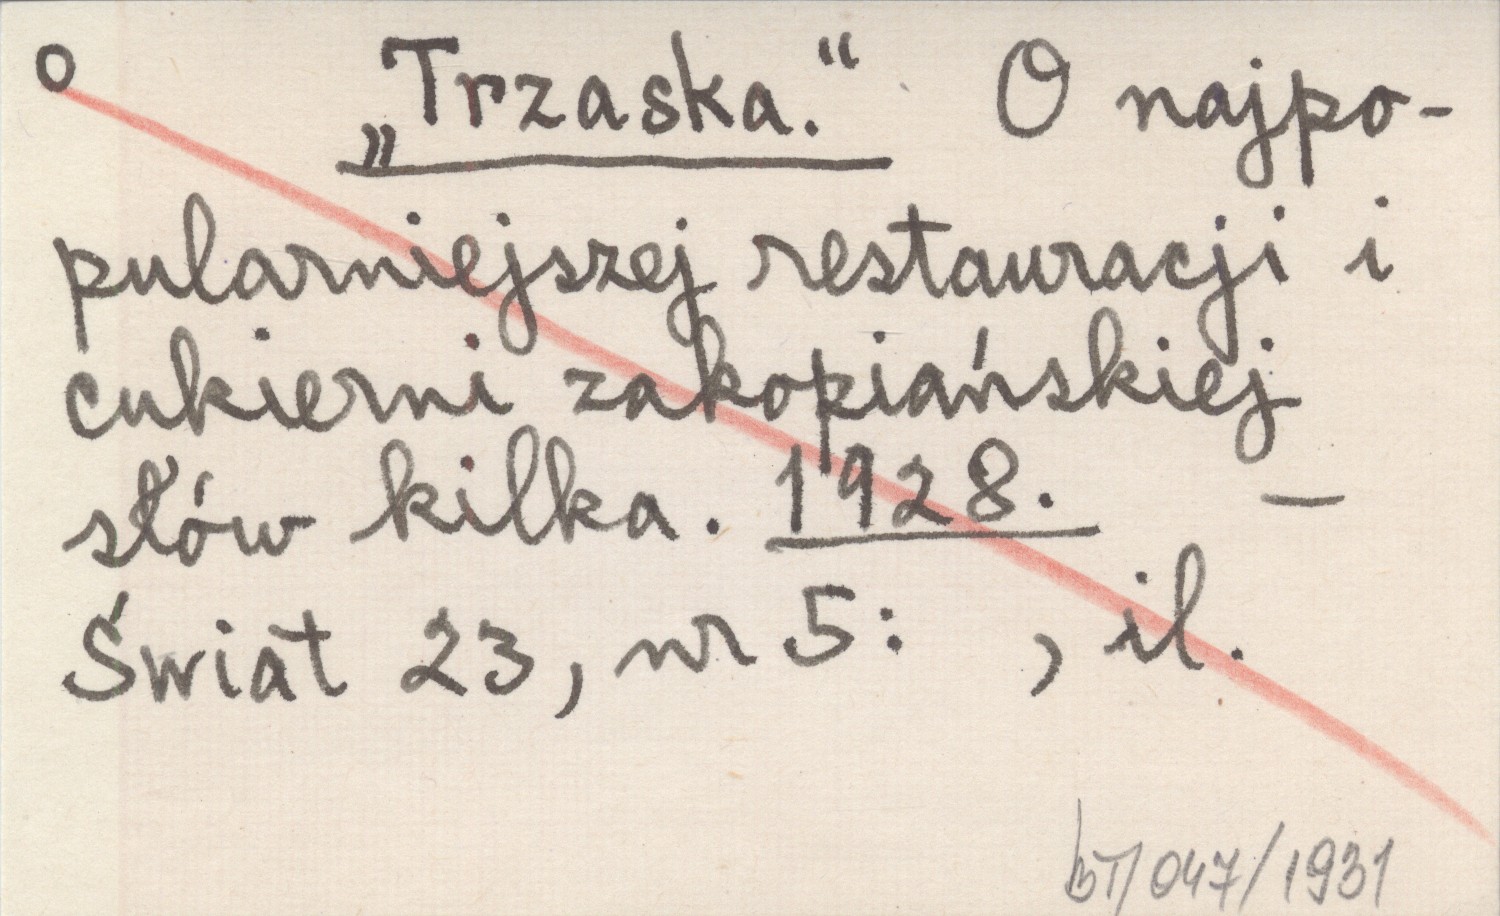 o „Trzaska.“ O najpo-
pularniejszej restauracji i
cukierni zakopiańskiej
słów kilka. 1928. —
Świat 23, nr 5: , il.
bT/047/1931